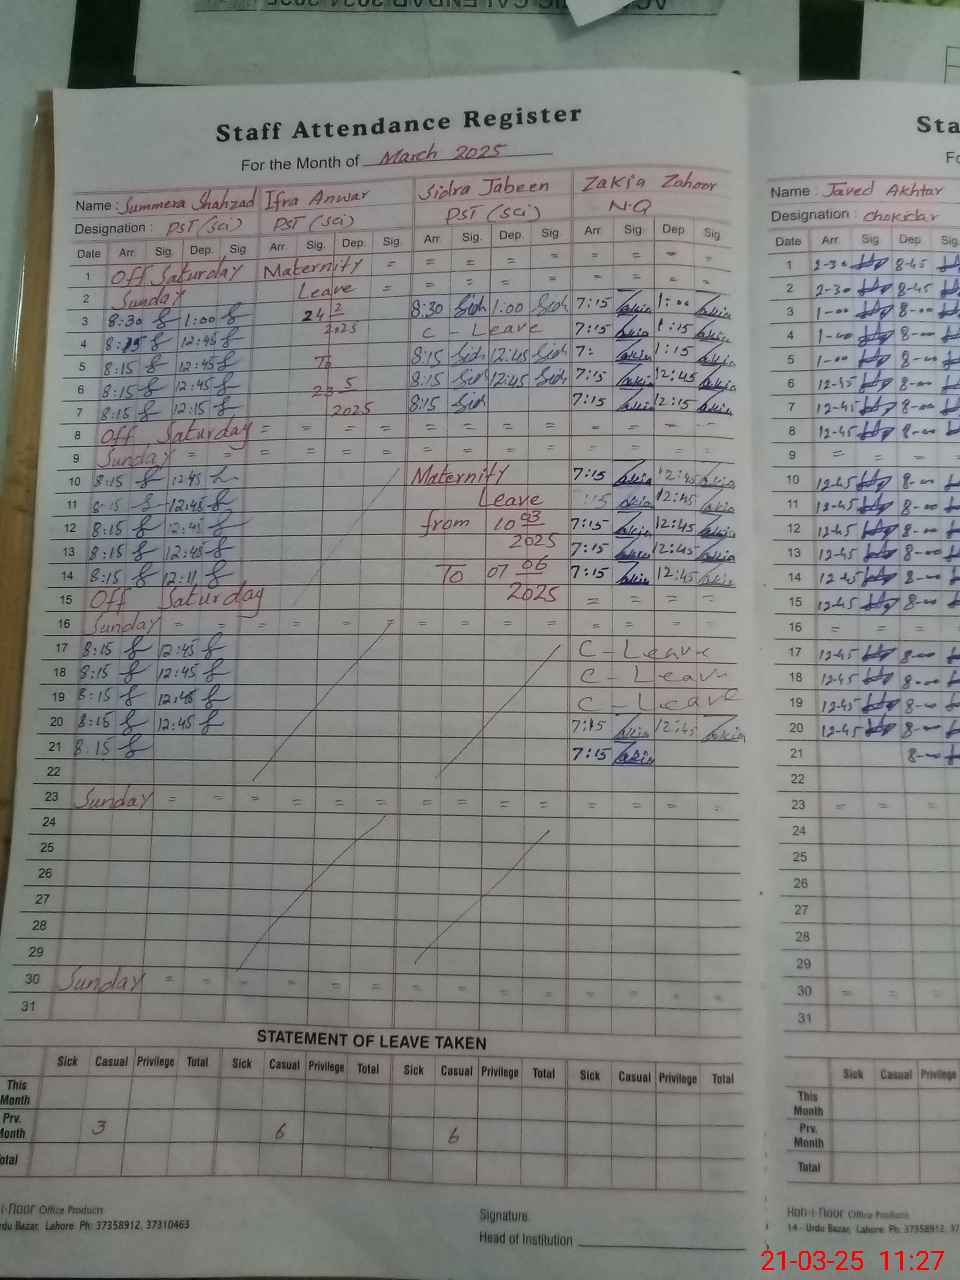 Staff Attendance Register
For the Month of March 2025
Name : Summera Shahzad Ifra Anwar Sidra Jabeen Zakia Zahoor
Designation : PST (Sci) PST (Sci) PST (Sci) N.Q
Date Arr. Sig. Dep. Sig Arr. Sig. Dep. Sig. Arr. Sig. Dep. Sig. Arr Sig. Dep Sig.
1 Off Saturday Maternity = = = = = = = =
2 Sunday Leave = = = = = = =
3 8:30 1:00 24 2 2025 8:30 Sidr 1:00 Sidr 7:15 Zakia 1:00 Zakia
4 8:15 12:45 C - Leave 7:15 Zakia 1:15 Zakia
5 8:15 12:45 To 8:15 Sidr 12:45 Sidr 7: Zakia 1:15 Zakia
6 8:15 12:45 23 5 8:15 Sidr 12:45 Sidr 7:15 Zakia 12:45 Zakia
7 8:15 12:15 2025 8:15 Sidr 7:15 Zakia 12:15 Zakia
8 Off Saturday = = = = = = = = = = = =
9 Sunday = = = = = = = = = = = = = =
10 8:15 12:45 Maternity 7:15 Zakia 12:45 Zakia
11 8:15 12:45 Leave 7:15 Zakia 12:45 Zakia
12 8:15 12:45 from 10 03 2025 7:15 Zakia 12:45 Zakia
13 8:15 12:45 7:15 Zakia 12:45 Zakia
14 8:15 12:11 To 07 06 2025 7:15 Zakia 12:45 Zakia
15 Off Saturday = = = =
16 Sunday = = = = = = = = = = = = = =
17 8:15 12:45 C - Leave
18 8:15 12:45 C - Leave
19 8:15 12:45 C - Leave
20 8:15 12:45 7:15 Zakia 12:45 Zakia
21 8:15 7:15 Zakia
22
23 Sunday = = = = = = = = = = = = = =
24
25
26
27
28
29
30 Sunday = = = = = = = = = = = = = =
31
STATEMENT OF LEAVE TAKEN
Sick Casual Privilege Total Sick Casual Privilege Total Sick Casual Privilege Total Sick Casual Privilege Total
This Month
Prv. Month 3 6 6
otal
Office Products
rdu Bazar, Lahore Ph: 37358912, 37310463
Signature:
Head of Institution
Sta
Name : Javed Akhtar
Designation : Chokidar
Date Arr. Sig Dep. Sig
1 2-30 8-45
2 2-30 8-45
3 1-00 8-00
4 1-00 8-00
5 1-00 8-00
6 12-45 8-00
7 12-45 8-00
8 12-45 8-00
9 = = = =
10 12-45 8-00
11 12-45 8-00
12 12-45 8-00
13 12-45 8-00
14 12-45 8-00
15 12-45 8-00
16 = = = =
17 12-45 8-00
18 12-45 8-00
19 12-45 8-00
20 12-45 8-00
21 8-00
22
23 = = = =
24
25
26
27
28
29
30 = = = =
31
Sick Casual Privilege
This Month
Prv. Month
Total
Office Products
14 - Urdu Bazar, Lahore Ph: 37358912, 37
21-03-25 11:27